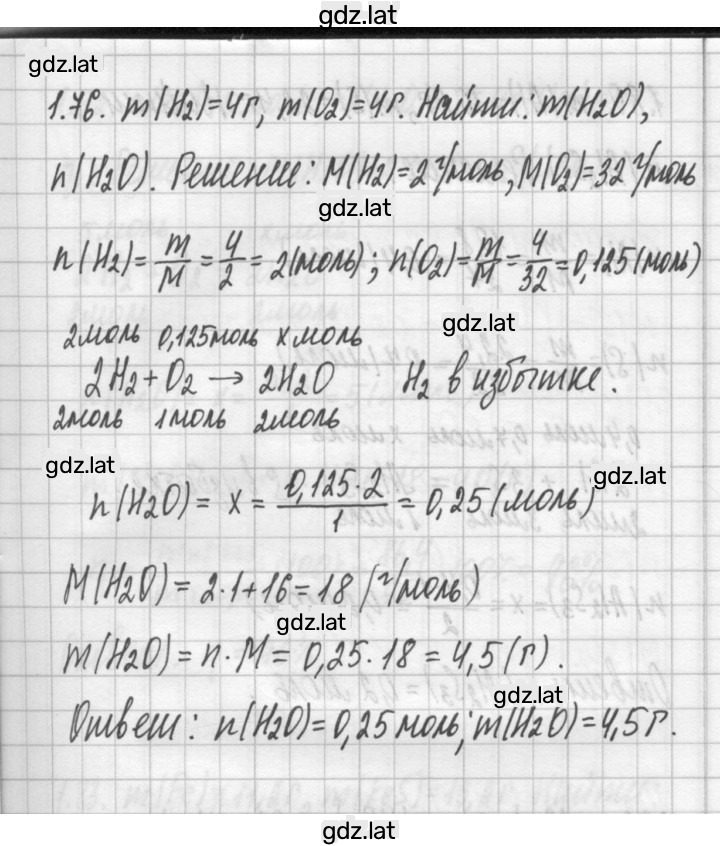 gdz.lat
gdz.lat
1.76. m(H₂)=4г, m(O₂)=4г. Найти: m(H₂O),
n(H₂O). Решение: M(H₂)=2 г/моль, M(O₂)=32 г/моль
gdz.lat
n(H₂)= m/M = 4/2 = 2(моль); n(O₂)= m/M = 4/32 = 0,125(моль)
gdz.lat
2моль 0,125моль x моль
2H₂+O₂ → 2H₂O H₂ в избытке.
2моль 1моль 2моль
gdz.lat
gdz.lat
n(H₂O) = x = 0,125·2/1 = 0,25(моль)
M(H₂O) = 2·1+16 = 18 (г/моль)
gdz.lat
m(H₂O) = n·M = 0,25·18 = 4,5(г).
gdz.lat
Ответ: n(H₂O)=0,25моль; m(H₂O)=4,5г.
gdz.lat